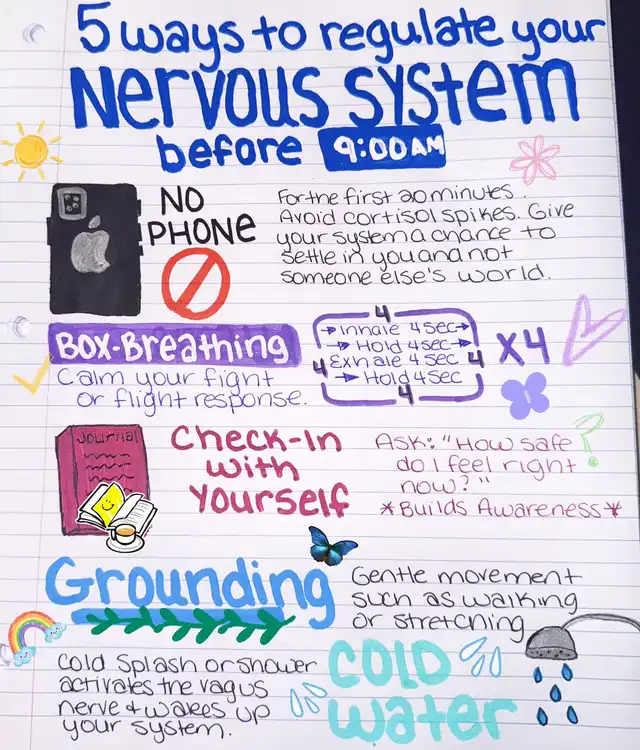 5 ways to regulate your
Nervous System
before 9:00AM
NO
PHONE
For the first 20 minutes.
Avoid cortisol spikes. Give
your system a chance to
settle in you and not
someone else's world.
Box-Breathing
Calm your fight
or flight response.
4
Inhale 4 sec
Hold 4 sec
4 Exhale 4 sec 4
Hold 4 sec
4
x4
Journal
Check-In
with
Yourself
Ask: "How safe
do I feel right
now?"
*Builds Awareness*
?
Grounding
Gentle movement
such as walking
or stretching
Cold splash or shower
activates the vagus
nerve & wakes up
your system.
Cold
Water